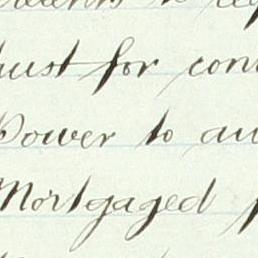 to
trust for con
Power to au
Mortgaged